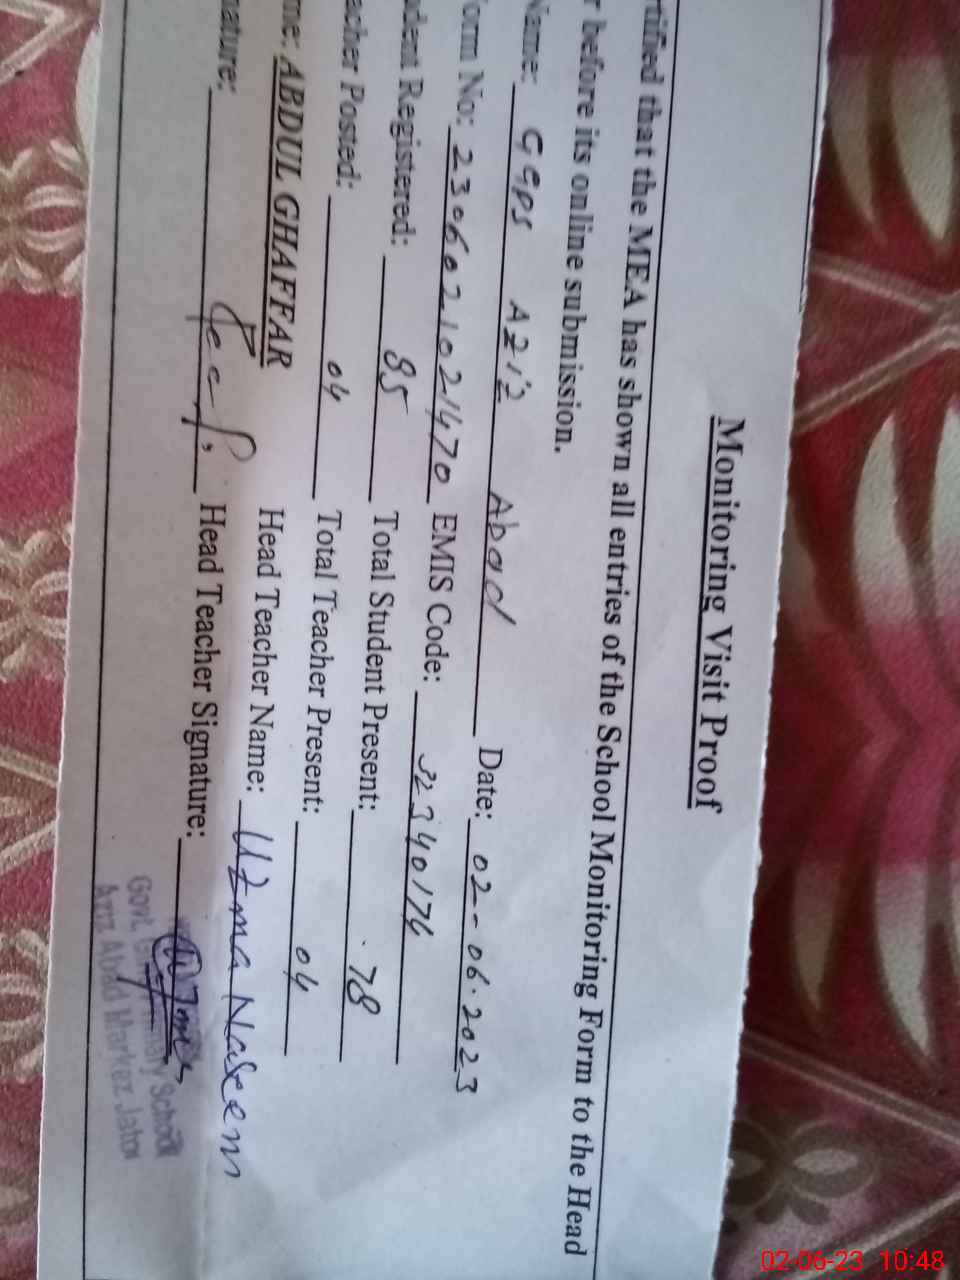 Monitoring Visit Proof
rtified that the MEA has shown all entries of the School Monitoring Form to the Head
r before its online submission.
Name: GGPS Aziz Abad Date: 02-06-2023
Form No: 2306021021470 EMIS Code: 32340174
udent Registered: 85 Total Student Present: 78
acher Posted: 04 Total Teacher Present: 04
me: ABDUL GHAFFAR Head Teacher Name: Uzma Naseem
nature: Head Teacher Signature: Uzma
Govt. School
Aziz Abad Markez Jatoi
02-06-23 10:48